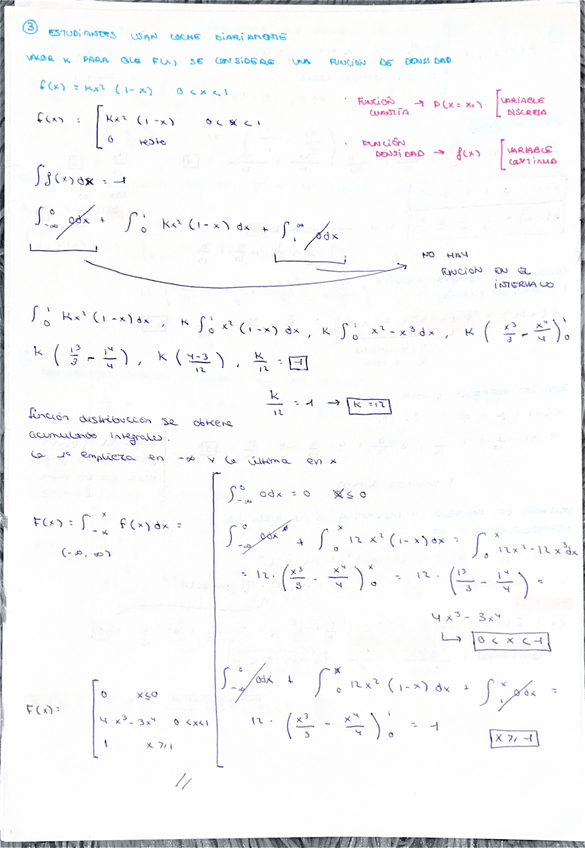 ③ ESTUDIANTES USAN COCHE DIARIAMENTE
VALOR K PARA QUE F(x) SE CONSIDERE UNA FUNCIÓN DE DENSIDAD
f(x) = Kx² (1-x) 0<x<1
f(x) = [ Kx² (1-x) 0<x<1
0 resto
· FUNCIÓN CUANTÍA → P(X=xi) [ VARIABLE DISCRETA
· FUNCIÓN DENSIDAD → f(x) [ VARIABLE CONTINUA
∫f(x)dx = 1
∫_{-∞}^{0} 0dx + ∫_{0}^{1} Kx² (1-x) dx + ∫_{1}^{∞} 0dx
NO HAY FUNCIÓN EN EL INTERVALO
∫_{0}^{1} Kx² (1-x)dx, K ∫_{0}^{1} x² (1-x) dx, K ∫_{0}^{1} x²-x³dx, K (x³/3 - x⁴/4)_{0}^{1}
K (1³/3 - 1⁴/4), K (4-3/12), K/12 = 1
K/12 = 1 → K=12
función distribución se obtiene
acumulando integrales.
la 1ª empieza en -∞ y la última en x
F(x) = ∫_{-∞}^{x} f(x)dx =
(-∞, ∞)
∫_{-∞}^{0} 0dx = 0 x≤0
∫_{-∞}^{0} 0dx + ∫_{0}^{x} 12x² (1-x)dx = ∫_{0}^{x} 12x²-12x³dx
= 12·(x³/3 - x⁴/4)_{0}^{x} = 12·(1³/3 - 1⁴/4) =
4x³-3x⁴
↳ 0<x<1
∫_{-∞}^{0} 0dx + ∫_{0}^{x} 12x² (1-x) dx + ∫_{1}^{x} 0dx =
12·(x³/3 - x⁴/4)_{0}^{1} = 1
x≥1
F(x) = [ 0 x≤0
4x³-3x⁴ 0<x<1
1 x≥1
//